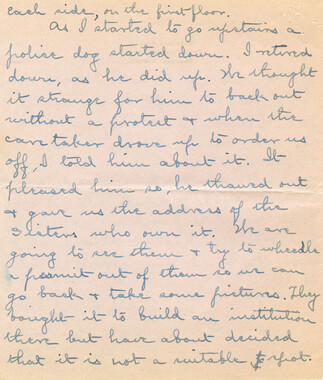 each side, on the first floor.
As I started to go upstairs a
police dog started down. I retired
down, as he did up. We thought
it strange for him to back out
without a protest & when the
care taker drove up to order us
off, I told him about it. It
pleased him so, he thawed out
& gave us the address of the
3 sisters who own it. We are
going to see them & try to wheedle
a permit out of them so we can
go back & take some pictures. They
bought it to build an institution
there but have about decided
that it is not a suitable spot.